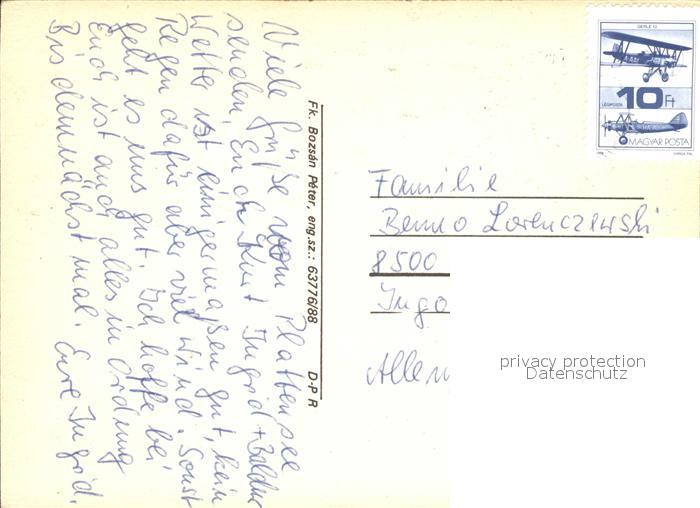 Viele Grüße vom Plattensee
senden Euch Kurt Ingrid +
Wetter ist einigermaßen gut, kein
Regen dafür aber viel Wind. Sonst
geht es uns gut. Ich hoffe bei
Euch ist auch alles in Ordnung
Bis demnächst mal. Eure Ingrid.
Fk. Bozsán Péter, eng.sz.: 63776/88 D-P R
GERLE 13
10 Ft
LÉGIPOSTA
MAGYAR POSTA
Familie
Benno Lorenczewski
8500
Ingo
Allem
privacy protection
Datenschutz